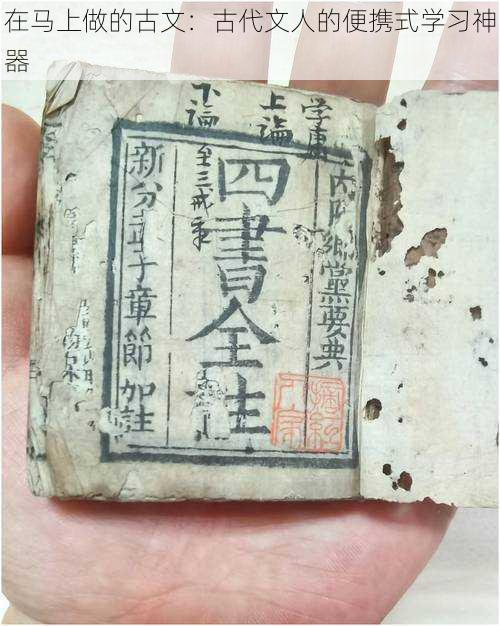 在马上做的古文：古代文人的便携式学习神
器
学庸
上論
下論
至三戒
内附鄉黨要典
四書全註
新分孟子章節加註